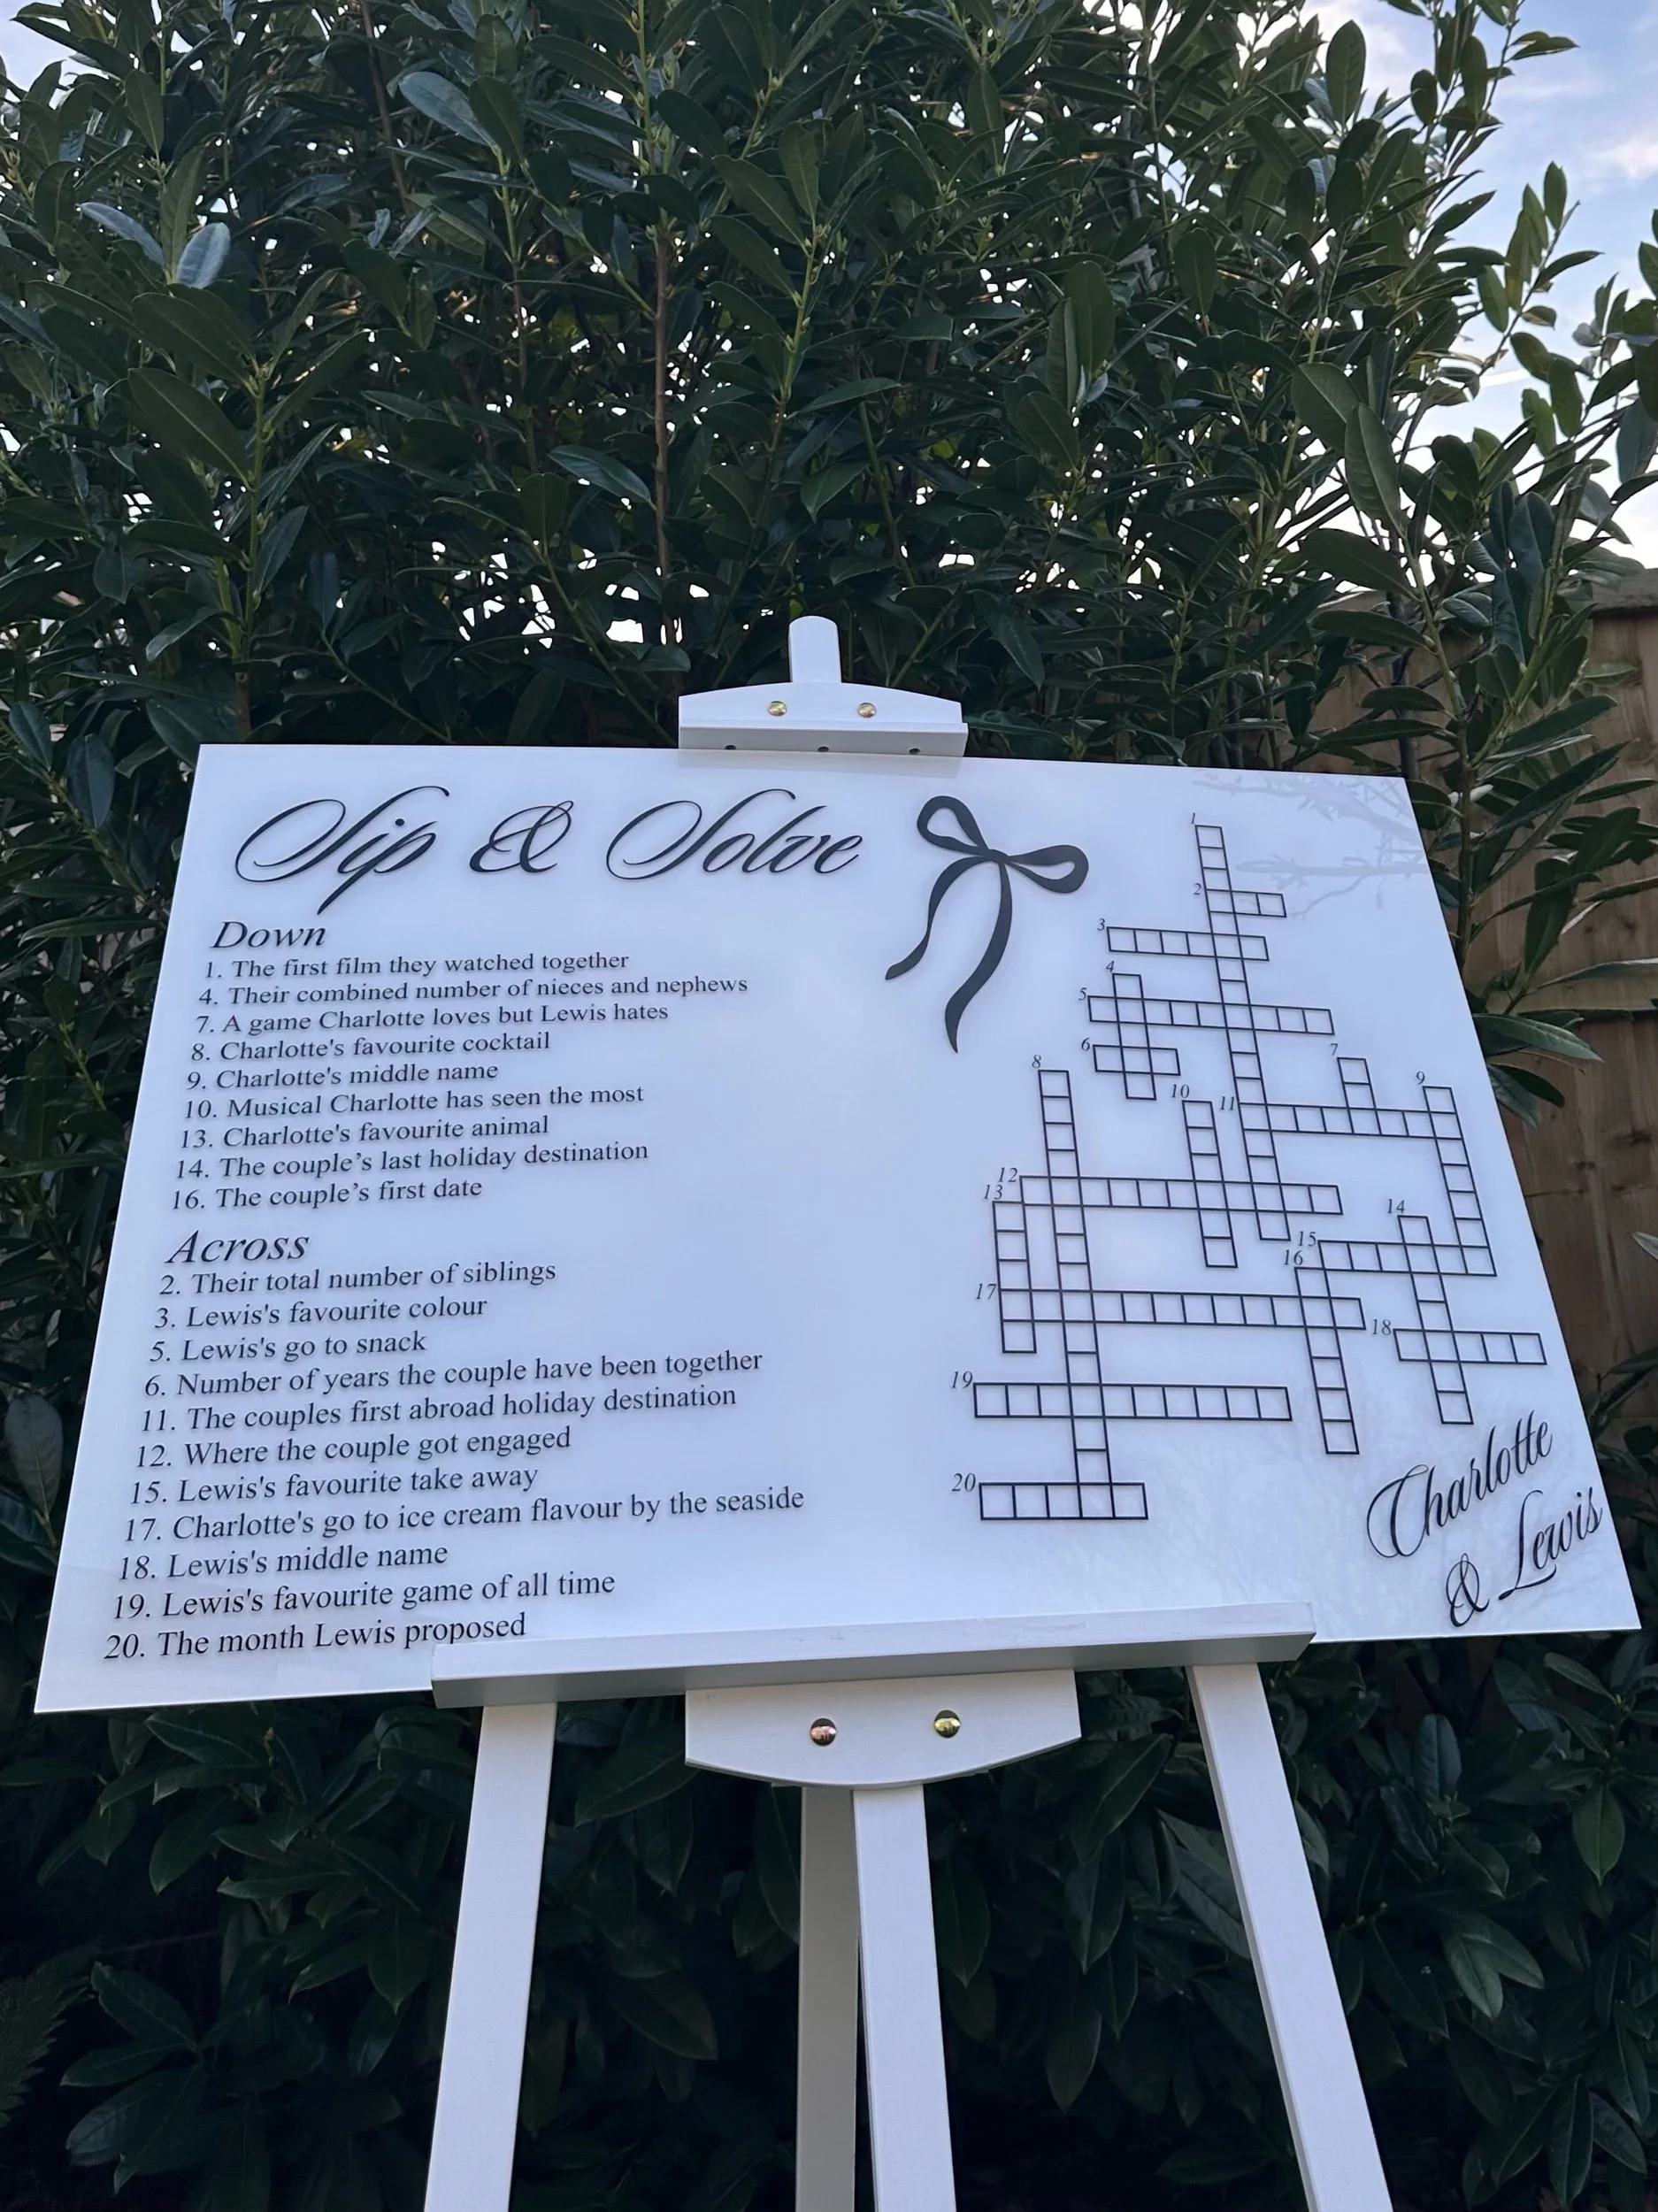 Sip & Solve
Down
1. The first film they watched together
4. Their combined number of nieces and nephews
7. A game Charlotte loves but Lewis hates
8. Charlotte's favourite cocktail
9. Charlotte's middle name
10. Musical Charlotte has seen the most
13. Charlotte's favourite animal
14. The couple’s last holiday destination
16. The couple’s first date
Across
2. Their total number of siblings
3. Lewis's favourite colour
5. Lewis's go to snack
6. Number of years the couple have been together
11. The couples first abroad holiday destination
12. Where the couple got engaged
15. Lewis's favourite take away
17. Charlotte's go to ice cream flavour by the seaside
18. Lewis's middle name
19. Lewis's favourite game of all time
20. The month Lewis proposed
1
2
3
4
5
6
7
8
9
10
11
12
13
14
15
16
17
18
19
20
Charlotte
& Lewis